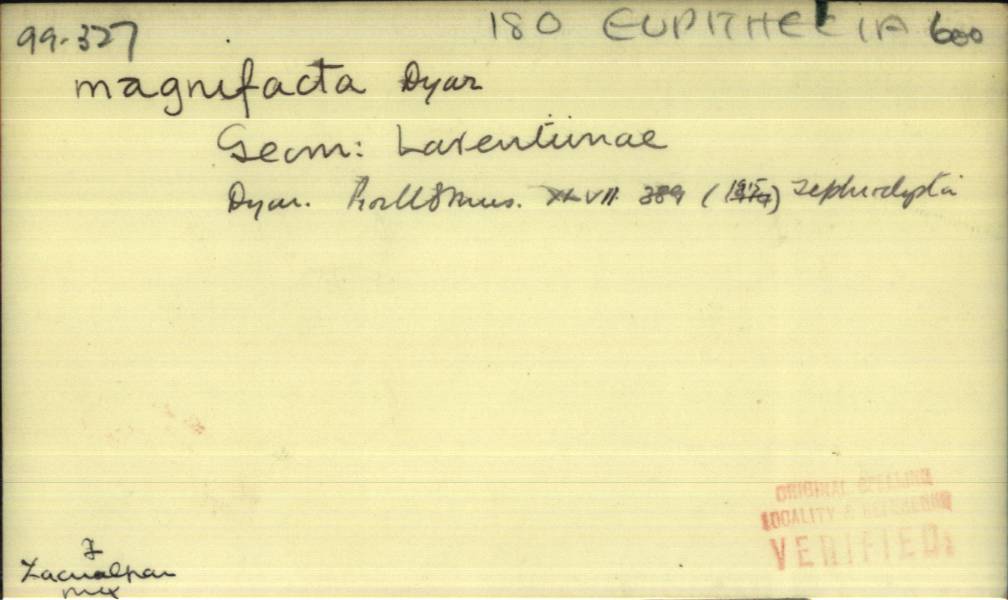 99-327 180 EUPITHECIA 600
magnifacta Dyar
Geom: Larentiinae
Dyar. Mus. XLVII 389 (1915) Tephroclysta
ORIGINAL SPELLING
LOCALITY & REFERENCE
VERIFIED
Zacualpan
Mex